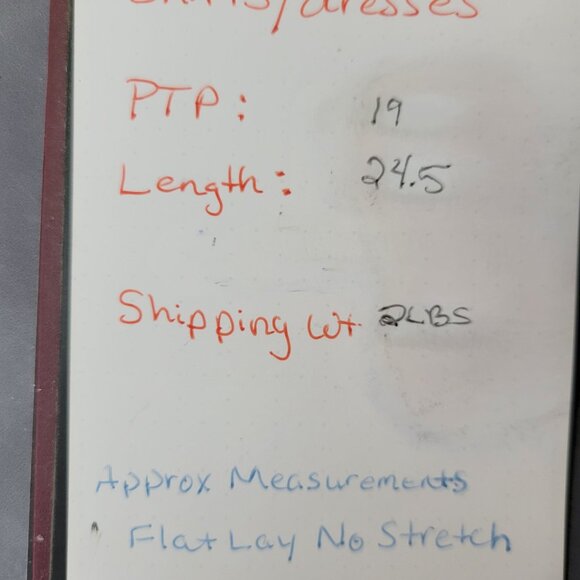 Shirts/dresses
PTP: 19
Length: 24.5
Shipping Wt 2LBS
Approx Measurements
Flat Lay No Stretch